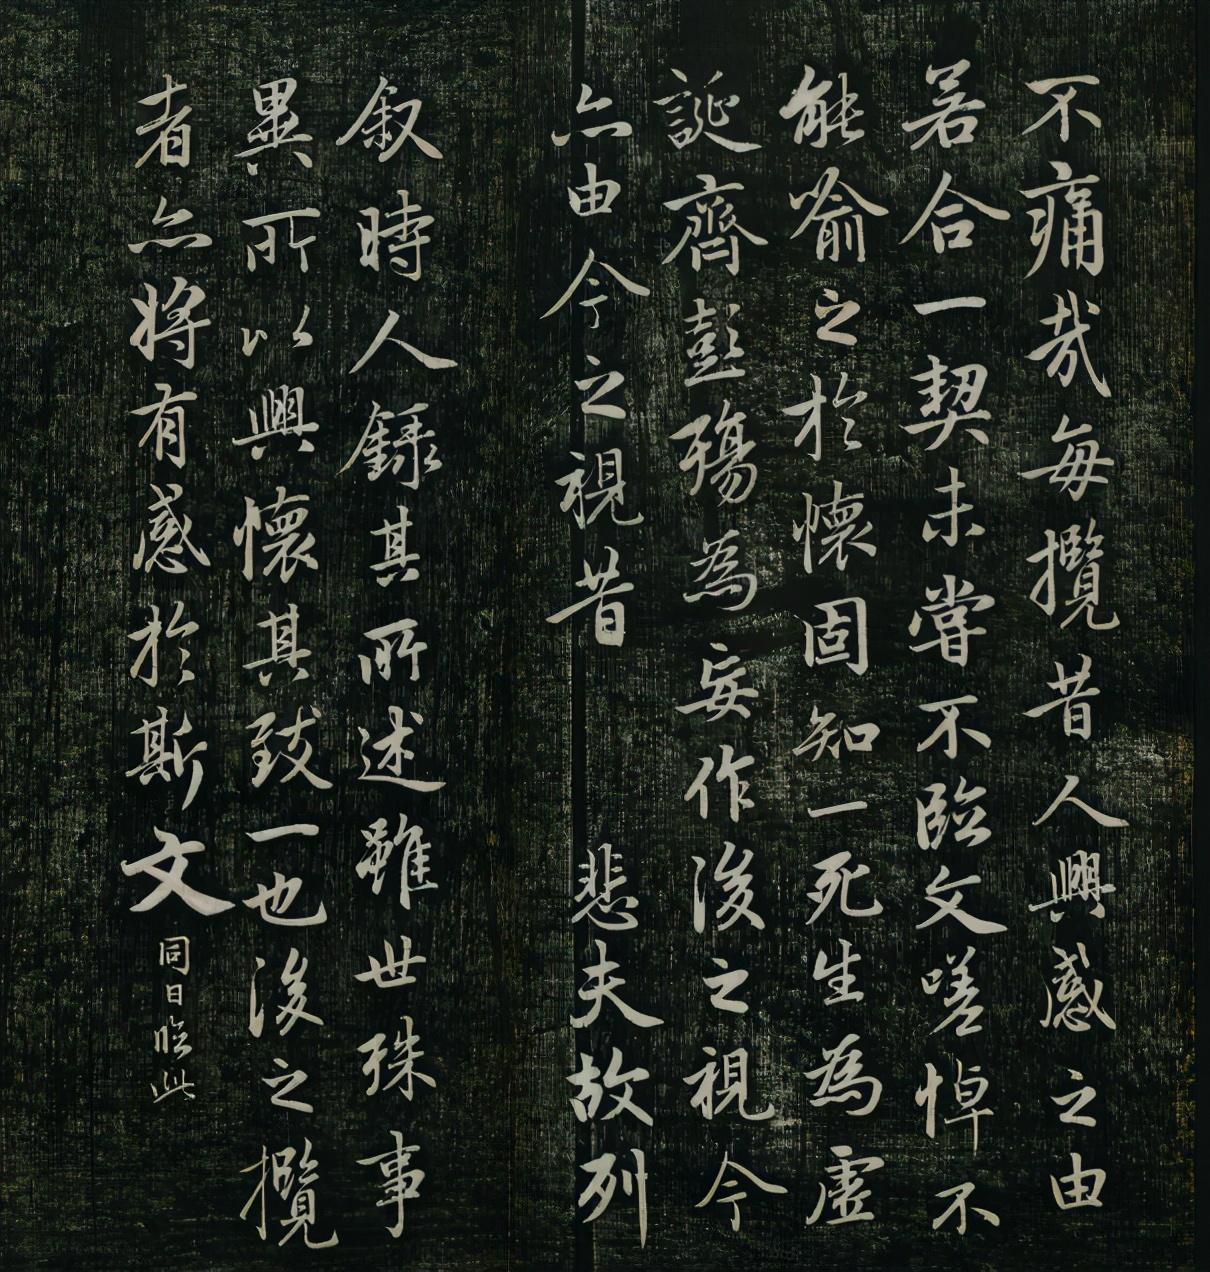 不痛哉每攬昔人興感之由
若合一契未嘗不臨文嗟悼不
能喻之於懷固知一死生為虛
誕齊彭殤為妄作後之視今
亦由今之視昔 悲夫故列
叙時人錄其所述雖世殊事
異所以興懷其致一也後之攬
者亦將有感於斯文
同日臨此